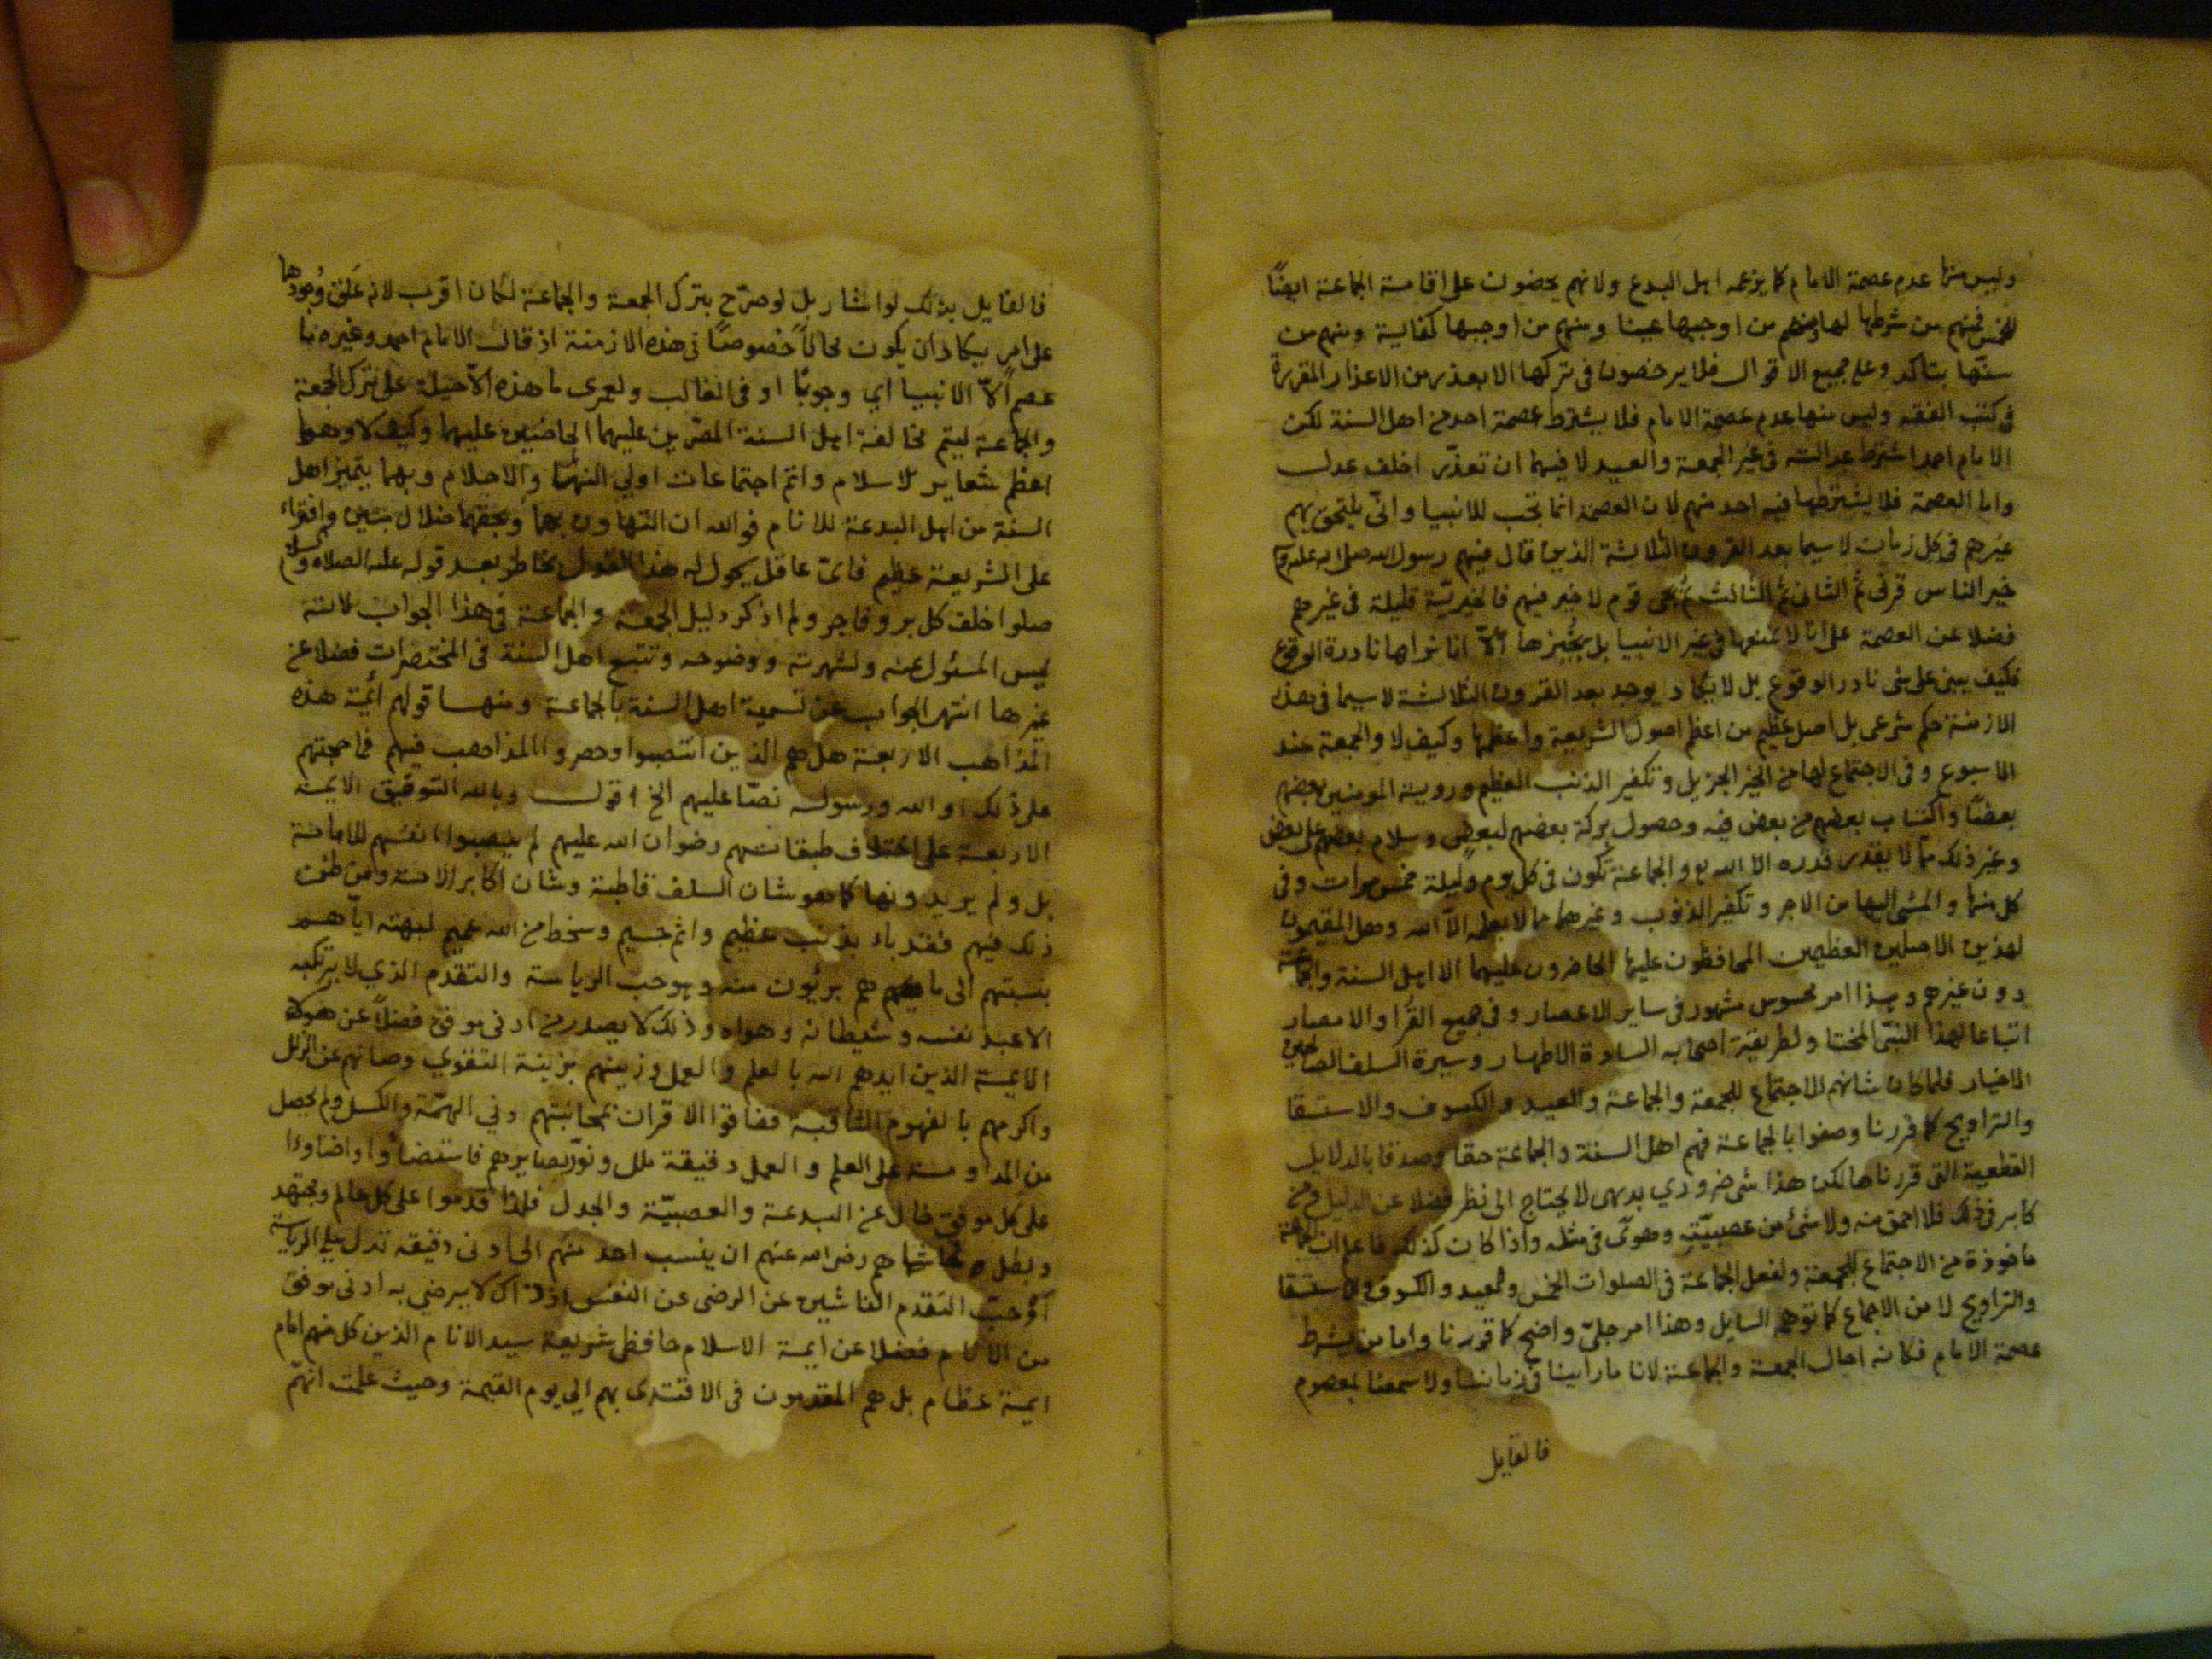 وليس منها عدم عصمة الامام كما يزعمه اهل البدع ولانهم يحضون على اقامة الجماعة ايضًا
للخمس فمنهم من شرطها لها ومنهم من اوجبها عينا ومنهم من اوجبها كفاية ومنهم من
سنّها بتأكد وعلى جميع الاقوال فلا يرخصون في تركها الا بعذر من الاعذار المقررة
في كتب الفقه وليس منها عدم عصمة الامام فلا يشترط عصمة احد من اهل السنة لكن
الامام احمد اشترط عدالته في غير الجمعة والعيد لا فيهما ان تعذّر اخلف عدل
واما العصمة فلا يشترطها فيه احد منهم لان العصمة انما تجب للانبيا وانّى يلتحق بهم
غيرهم في كل زمان لا سيما بعد القرون الثلاثة الذين قال فيهم رسول الله صلى الله عليه وم
خير الناس قرني ثم الثاني ثم الثالث ثم يجي قوم لا خير فيهم فالخيريّة قليلة في غيرهم
فضلا عن العصمة على انا لا نمنعها في غير الانبيا بل نجيزها الّا انا نراها نادرة الوقوع
فكيف يبنى على شي نادر الوقوع بل لا يكاد يوجد بعد القرون الثلاثة لا سيما في هذه
الازمنة حكم شرعي بل اصل عظيم من اعظم اصول الشريعة واعظمها وكيف لا والجمعة عيد
الاسبوع وفي الاجتماع لها من الخير الجزيل وتكفير الذنب العظيم ورؤية المومنين بعضهم
بعضًا واكتساب بعضهم من بعض فيه وحصول بركة بعضهم لبعض وسلام بعضهم على بعض
وغير ذلك مما لا يقدر قدره الا الله تع والجماعة تكون في كل يوم وليلة خمس مرات وفي
كل منها والمشي اليها من الاجر وتكفير الذنوب وغيرهما مما لا يعلمه الّا الله وهل المقيمون
لهذين الاصلين العظيمين المحافظون عليها الحاضرون عليهما الا اهل السنة والجماعة
دون غيرهم وهذا امر محسوس مشهور في ساير الاعصار وفي جميع القرا والامصار
اتباعا لهذا النبّي المختا ولطريقة اصحابه السادة الاطهار وسيرة السلف الصالحين
الاخيار فلما كان شانهم الاجتماع للجمعة والجماعة والعيد والكسوف والاستسقا
والتراويح كما قررنا وصفوا بالجماعة فهم اهل السنة والجماعة حقا وصدقا بالدلايل
القطعية التي قررناها لكن هذا شي ضروري بديهي لا يحتاج الى نظر فضلا عن الدليل فمن
كابر في ذلك فلا احمق منه ولا شئ من عصبيّته وهوىً في مثله واذا كان كذلك فاعلم ان الجماعة
ماخوذة من الاجتماع للجمعة ولفعل الجماعة في الصلوات الخمس والعيد والكسوف والاستسقا
والتراويح لا من الاجماع كما توهمه السايل وهذا امر جليّ واضح كما قررنا واما من يشرط
عصمة الامام فكانه احال الجمعة والجماعة لانا ما راينا في زماننا ولا سمعنا بمعصوم
فالقايل
فالقايل بذلك لو اشار بل لو صرّح بترك الجمعة والجماعة لكان اقرب لانه علّق وجودها
على امر يكاد ان يكون محالاً خصوصًا في هذه الازمنة اذ قال الامام احمد وغيره ما
عصم الّا الانبيا اي وجوبًا او في الغالب ولعمرى ما هذه الّا حيلة على ترك الجمعة
والجماعة ليتم مخالفة اهل السنة المصرّين عليهما الحاضين عليهما وكيف لا وهما
اعظم شعاير الاسلام واتم اجتماعات اولي النهى والاحلام وبهما يتميز اهل
السنة من اهل البدعة للانام فوالله ان التهاون بهما وبحقهما ضلال مبين وافتراء
على الشريعة عظيم فايّ عاقل يجول له هذا القول بخاطر بعد قوله عليه الصلاه والسلام
صلوا خلف كل بر وفاجر ولم اذكر دليل الجمعة والجماعة في هذا الجواب لانه
ليس المسئول عنه ولشهرته ووضوحه وتتبع اهل السنة في المختصرات فضلا عن
غيرها انتهى الجواب عن تسمية اهل السنة بالجماعة ومنها قولهم ائمة هذه
المذاهب الاربعة هل هم الذين انتصبوا وحصروا المذاهب فيهم فما حجتهم
على ذلك او الله ورسوله نصّا عليهم الخ اقول وبالله التوفيق الايمة
الاربعة على اختلاف طبقاتهم رضوان الله عليهم لم ينصبوا انفسهم للامامة
بل ولم يريدونها كما هو شان السلف قاطبة وشان اكابر الامة ومن ظن
ذلك فيهم فقد باء بذنب عظيم واثم جسيم وسخط من الله عميم لبهته اياهم
بنسبتهم الى ما هم بريّون منه وهو حب الرياسة والتقدم الذي لا يرتكبه
الا عبد نفسه وشيطانه وهواه وذلك لا يصدر من ادنى موفق فضلاً عن هولاء
الايمة الذين ايدهم الله بالعلم والعمل وزينهم بزينة التقوى وصانهم عن الزلل
واكرمهم بالفهوم الثاقبة ففاقوا الاقران بمجانبتهم دني الهمّة والكسل ولم يحصل
من المداومة على العلم والعمل دقيقة ملل ونوّر بصايرهم فاستضاؤا واضاوا
على كل موفق خال عن البدعة والعصبيّة والجدل فلذا قدموا على كل عالم ومجتهد
وبطل حاشاهم رضى الله عنهم ان ينسب احد منهم الى ادنى دقيقه تدل على الرياسة
او حبّ التقدم الناشيين عن الرضى عن النفس اذ ذاك لا يرضي به ادنى موفق
من الانام فضلا عن ايمة الاسلام حافظي شريعة سيد الانام الذين كل منهم امام
ايمة عظام بل هم المقدمون في الاقتدى بهم الي يوم القيمة وحيث علمت انهم